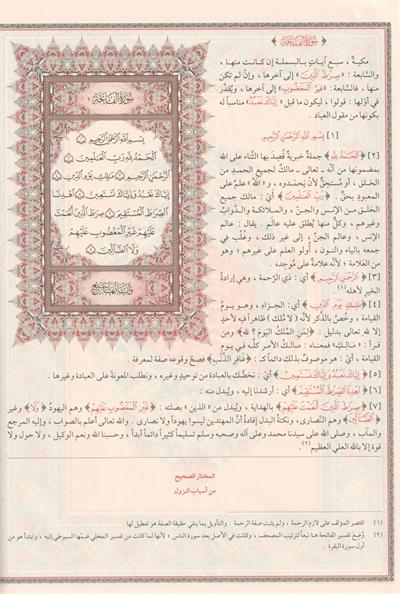 ﴿ سُورَةُ الفَاتِحَةِ ﴾
مكية ، سبع آيات بالبسملة إن كانت منها ،
والسابعة : ﴿صِرَاطَ الَّذِينَ﴾ إلى آخرها ، وإن لم تكن
منها ، فالسابعة : ﴿غَيْرِ الْمَغْضُوبِ﴾ إلى آخرها ، ويُقدَّر
في أوّلها : قولوا ، ليكون ما قبل ﴿إِيَّاكَ نَعْبُدُ﴾ مناسباً له
بكونها من مقول العباد .
[١] بِسْمِ اللَّهِ الرَّحْمَٰنِ الرَّحِيمِ
[٢] ﴿الْحَمْدُ لِلَّهِ﴾ جملة خبرية قُصِدَ بها الثناء على الله
بمضمونها من أنّه ـ تعالى ـ مالكٌ لجميع الحمد من
الخلق ، أو مُستحِقٌّ لأنْ يحمَدوه ، و «الله» علم على
المعبود بحقّ . ﴿رَبِّ الْعَالَمِينَ﴾ أيْ : مالك جميع
الخلق من الإنس والجن ، والملائكة والدَّوابّ
وغيرهم ، وكلٌّ منها يُطلق عليه عالَم . يقال : عالَم
الإنس ، وعالَم الجنّ ، إلى غير ذلك ، وغُلِّب في
جمعه بالياء والنون ، أُولو العلم على غيرهم ، وهو
من العلامة ؛ لأنّه علامةٌ على مُوجِده .
[٣] ﴿الرَّحْمَٰنِ الرَّحِيمِ﴾ أي : ذي الرَّحمة ، وهي إرادةُ
الخير لأهله(١) .
[٤] ﴿مَالِكِ يَوْمِ الدِّينِ﴾ أي : الجزاء ، وهو يوم
القيامة ، وخُصَّ بالذِّكر لأنّه لا مُلكَ ظاهراً فيه لأحدٍ
إلا لله تعالى بدليل : ﴿لِمَنِ الْمُلْكُ الْيَوْمَ ؟ لِلَّهِ﴾ ومن
قرأ : «مالك» فمعناه : مالكُ الأمرِ كلِّه في يوم
القيامة ، أيْ : هو موصوفٌ بذلك دائماً كـ : ﴿غَافِرِ الذَّنْبِ﴾ فصحَّ وقوعه صفة لمعرفة .
[٥] ﴿إِيَّاكَ نَعْبُدُ وَإِيَّاكَ نَسْتَعِينُ﴾ أيْ : نخصُّك بالعبادة من توحيدٍ وغيره ، ونطلب المعونةَ على العبادة وغيرها .
[٦] ﴿اهْدِنَا الصِّرَاطَ الْمُسْتَقِيمَ﴾ أي : أرشدنا إليه ، ويُبدل منه :
[٧] ﴿صِرَاطَ الَّذِينَ أَنْعَمْتَ عَلَيْهِمْ﴾ بالهداية ، ويُبدل من «الذين» بصلته : ﴿غَيْرِ الْمَغْضُوبِ عَلَيْهِمْ﴾ وهم اليهود ﴿وَلَا﴾ وغير
﴿الضَّالِّينَ﴾ وهم النَّصارى ، ونكتةُ البدل إفادةُ أنَّ المهتدين ليسوا يهوداً ولا نصارى . والله تعالى أعلم بالصواب ، وإليه المرجع
والمآب ، وصلى الله على سيدنا محمد وعلى آله وصحبه وسلم تسليماً كثيراً دائماً أبداً ، وحسبنا الله ونعم الوكيل ، ولا حول ولا
قوة إلا بالله العلي العظيم(٢) .
سُورَةُ الفَاتِحَةِ
بِسْمِ اللَّهِ الرَّحْمَٰنِ الرَّحِيمِ ١
الْحَمْدُ لِلَّهِ رَبِّ الْعَالَمِينَ ٢
الرَّحْمَٰنِ الرَّحِيمِ ٣ مَالِكِ يَوْمِ الدِّينِ ٤
إِيَّاكَ نَعْبُدُ وَإِيَّاكَ نَسْتَعِينُ ٥ اهْدِنَا
الصِّرَاطَ الْمُسْتَقِيمَ ٦ صِرَاطَ الَّذِينَ أَنْعَمْتَ
عَلَيْهِمْ غَيْرِ الْمَغْضُوبِ عَلَيْهِمْ
وَلَا الضَّالِّينَ ٧
المختار الصحيح
من أسباب النزول
(١) اقتصر المؤلف على لازم الرحمة ، ولم يثبت صفة الرحمة . والتأويل بما ينفي حقيقة الصفة هو تعطيل لها .
(٢) وُضِعَ تفسير الفاتحة هنا تبعاً لترتيب المصحف ، وكانت في الأصل بعد سورة الناس ؛ لأنها لما كانت من تفسير المحلي ضمّها السيوطي إليه ، وابتدأ هو من
أول سورة البقرة .